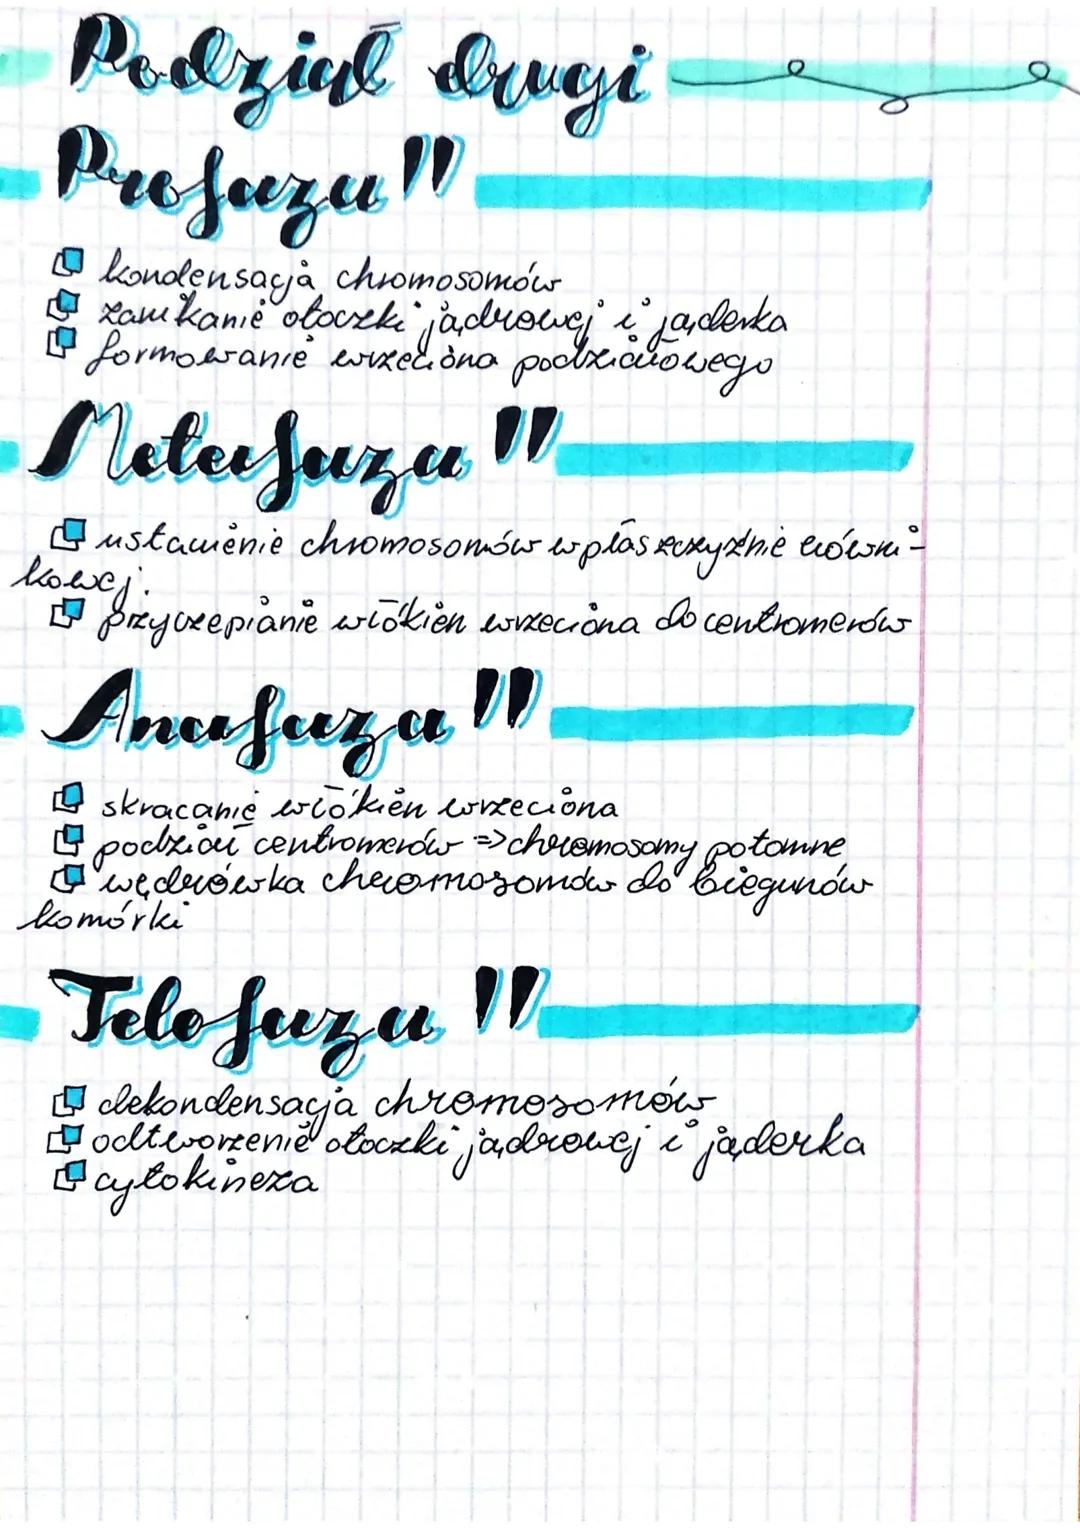 Podział drugi
Profaza II
kondensacja chromosomów
zanikanie otoczki jądrowej i jąderka
formowanie wrzeciona podziałowego
Metafaza II
ustawienie chromosomów w płaszczyźnie równi-
kowej.
przyczepianie włókien wrzeciona do centromerów
Anafaza II
skracanie włókien wrzeciona
podział centromerów => chromosomy potomne
wędrówka chromosomów do biegunów
komórki
Telofaza II
dekondensacja chromosomów
odtworzenie otoczki jądrowej i jąderka
cytokineza